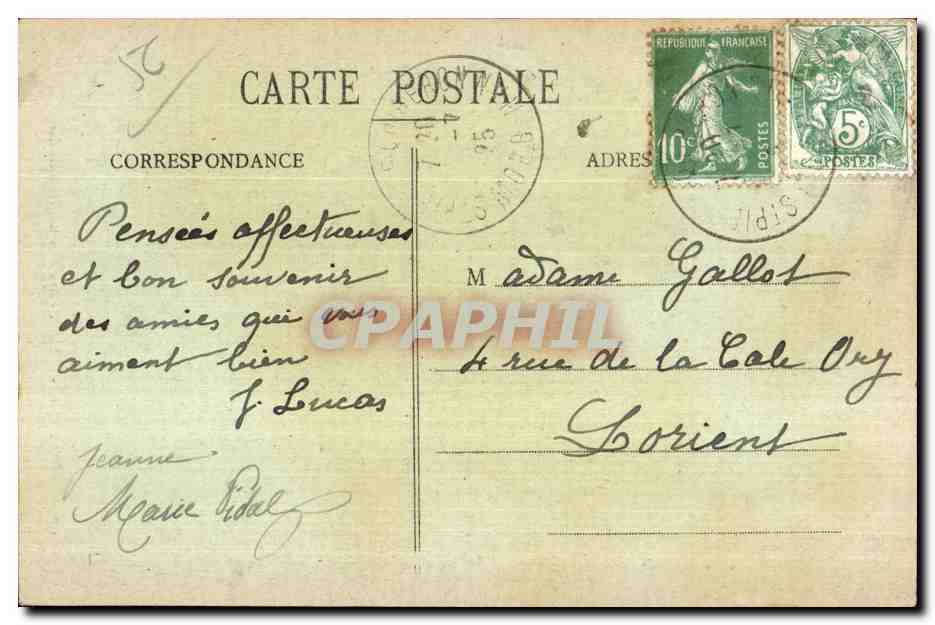 CARTE POSTALE
CORRESPONDANCE
ADRES
RÉPUBLIQUE FRANÇAISE
10c
POSTES
5c
POSTES
7 - 4
25
Pensées affectueuses
et bon souvenir
des amies qui vous
aiment bien
J. Lucas
Jeanne
Marie Vidal
Madame Gallot
4 rue de la Cale Ory
Lorient
CPAPHIL